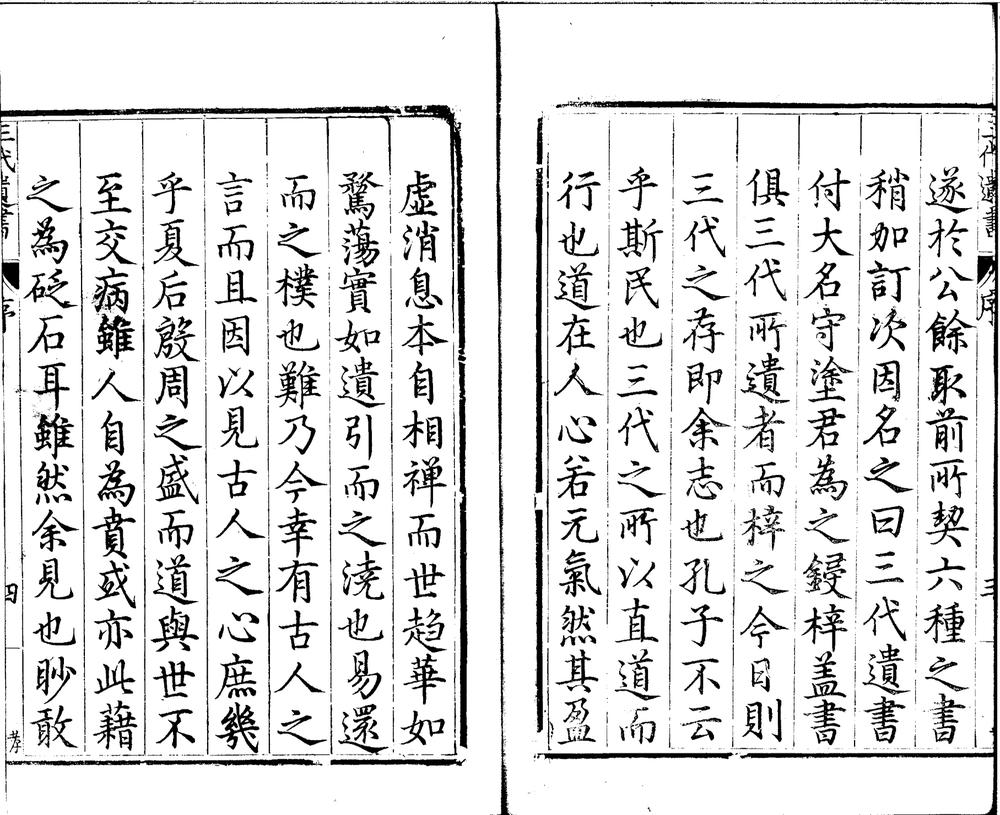 三代遺書
序
三
遂於公餘取前所契六種之書
稍加訂次因名之曰三代遺書
付大名守塗君為之鋟梓盖書
俱三代所遺者而梓之今日則
三代之存即余志也孔子不云
乎斯民也三代之所以直道而
行也道在人心若元氣然其盈
虛消息本自相禅而世趋華如
騖蕩實如遺引而之澆也易還
而之樸也難乃今幸有古人之
言而且因以見古人之心庶幾
乎夏后殷周之盛而道與世不
至交病雖人自為賁或亦此藉
之為砭石耳雖然余見也眇敢
三代遺書
序
四
孝